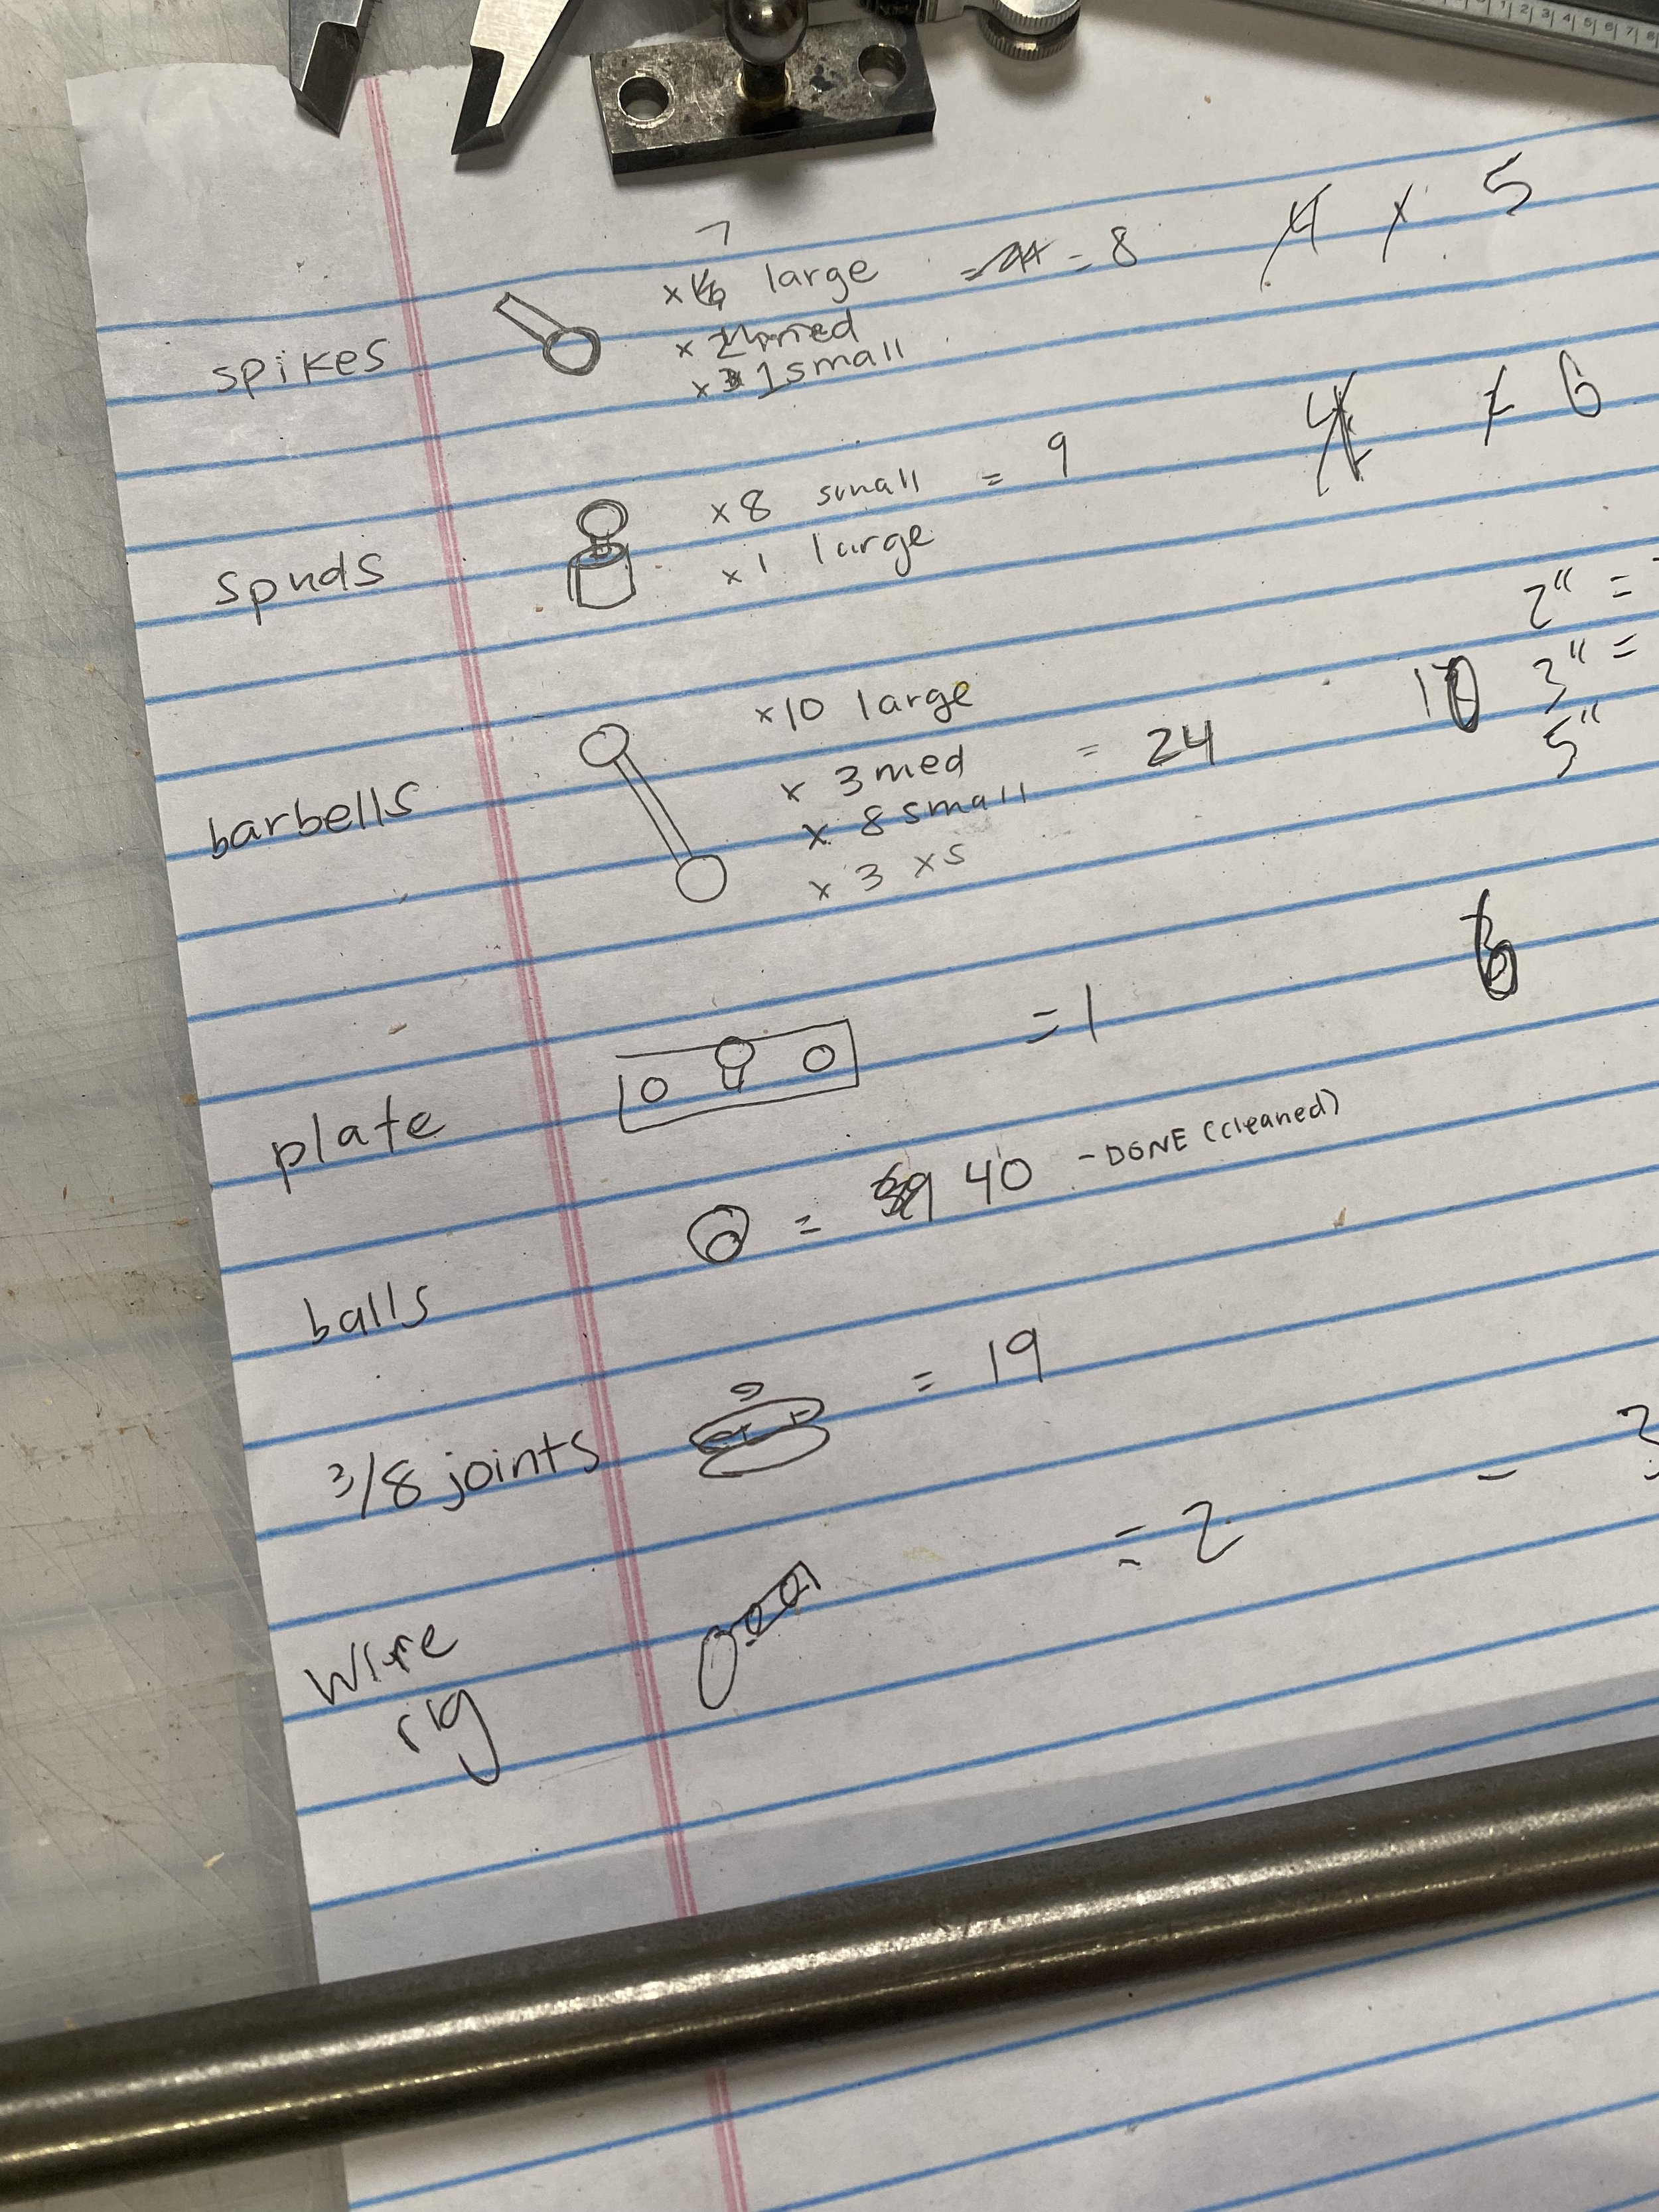 7
spikes x large = 8 4 x 5
x 2 med
x 1 small
spuds x8 small = 9 4 6
x1 large
2" =
3" =
5"
barbells x10 large
x 3 med = 24
x 8 small
x 3 xs
plate = 1
balls = 39 40 - DONE (cleaned)
3/8 joints = 19
wire rig = 2 - 3